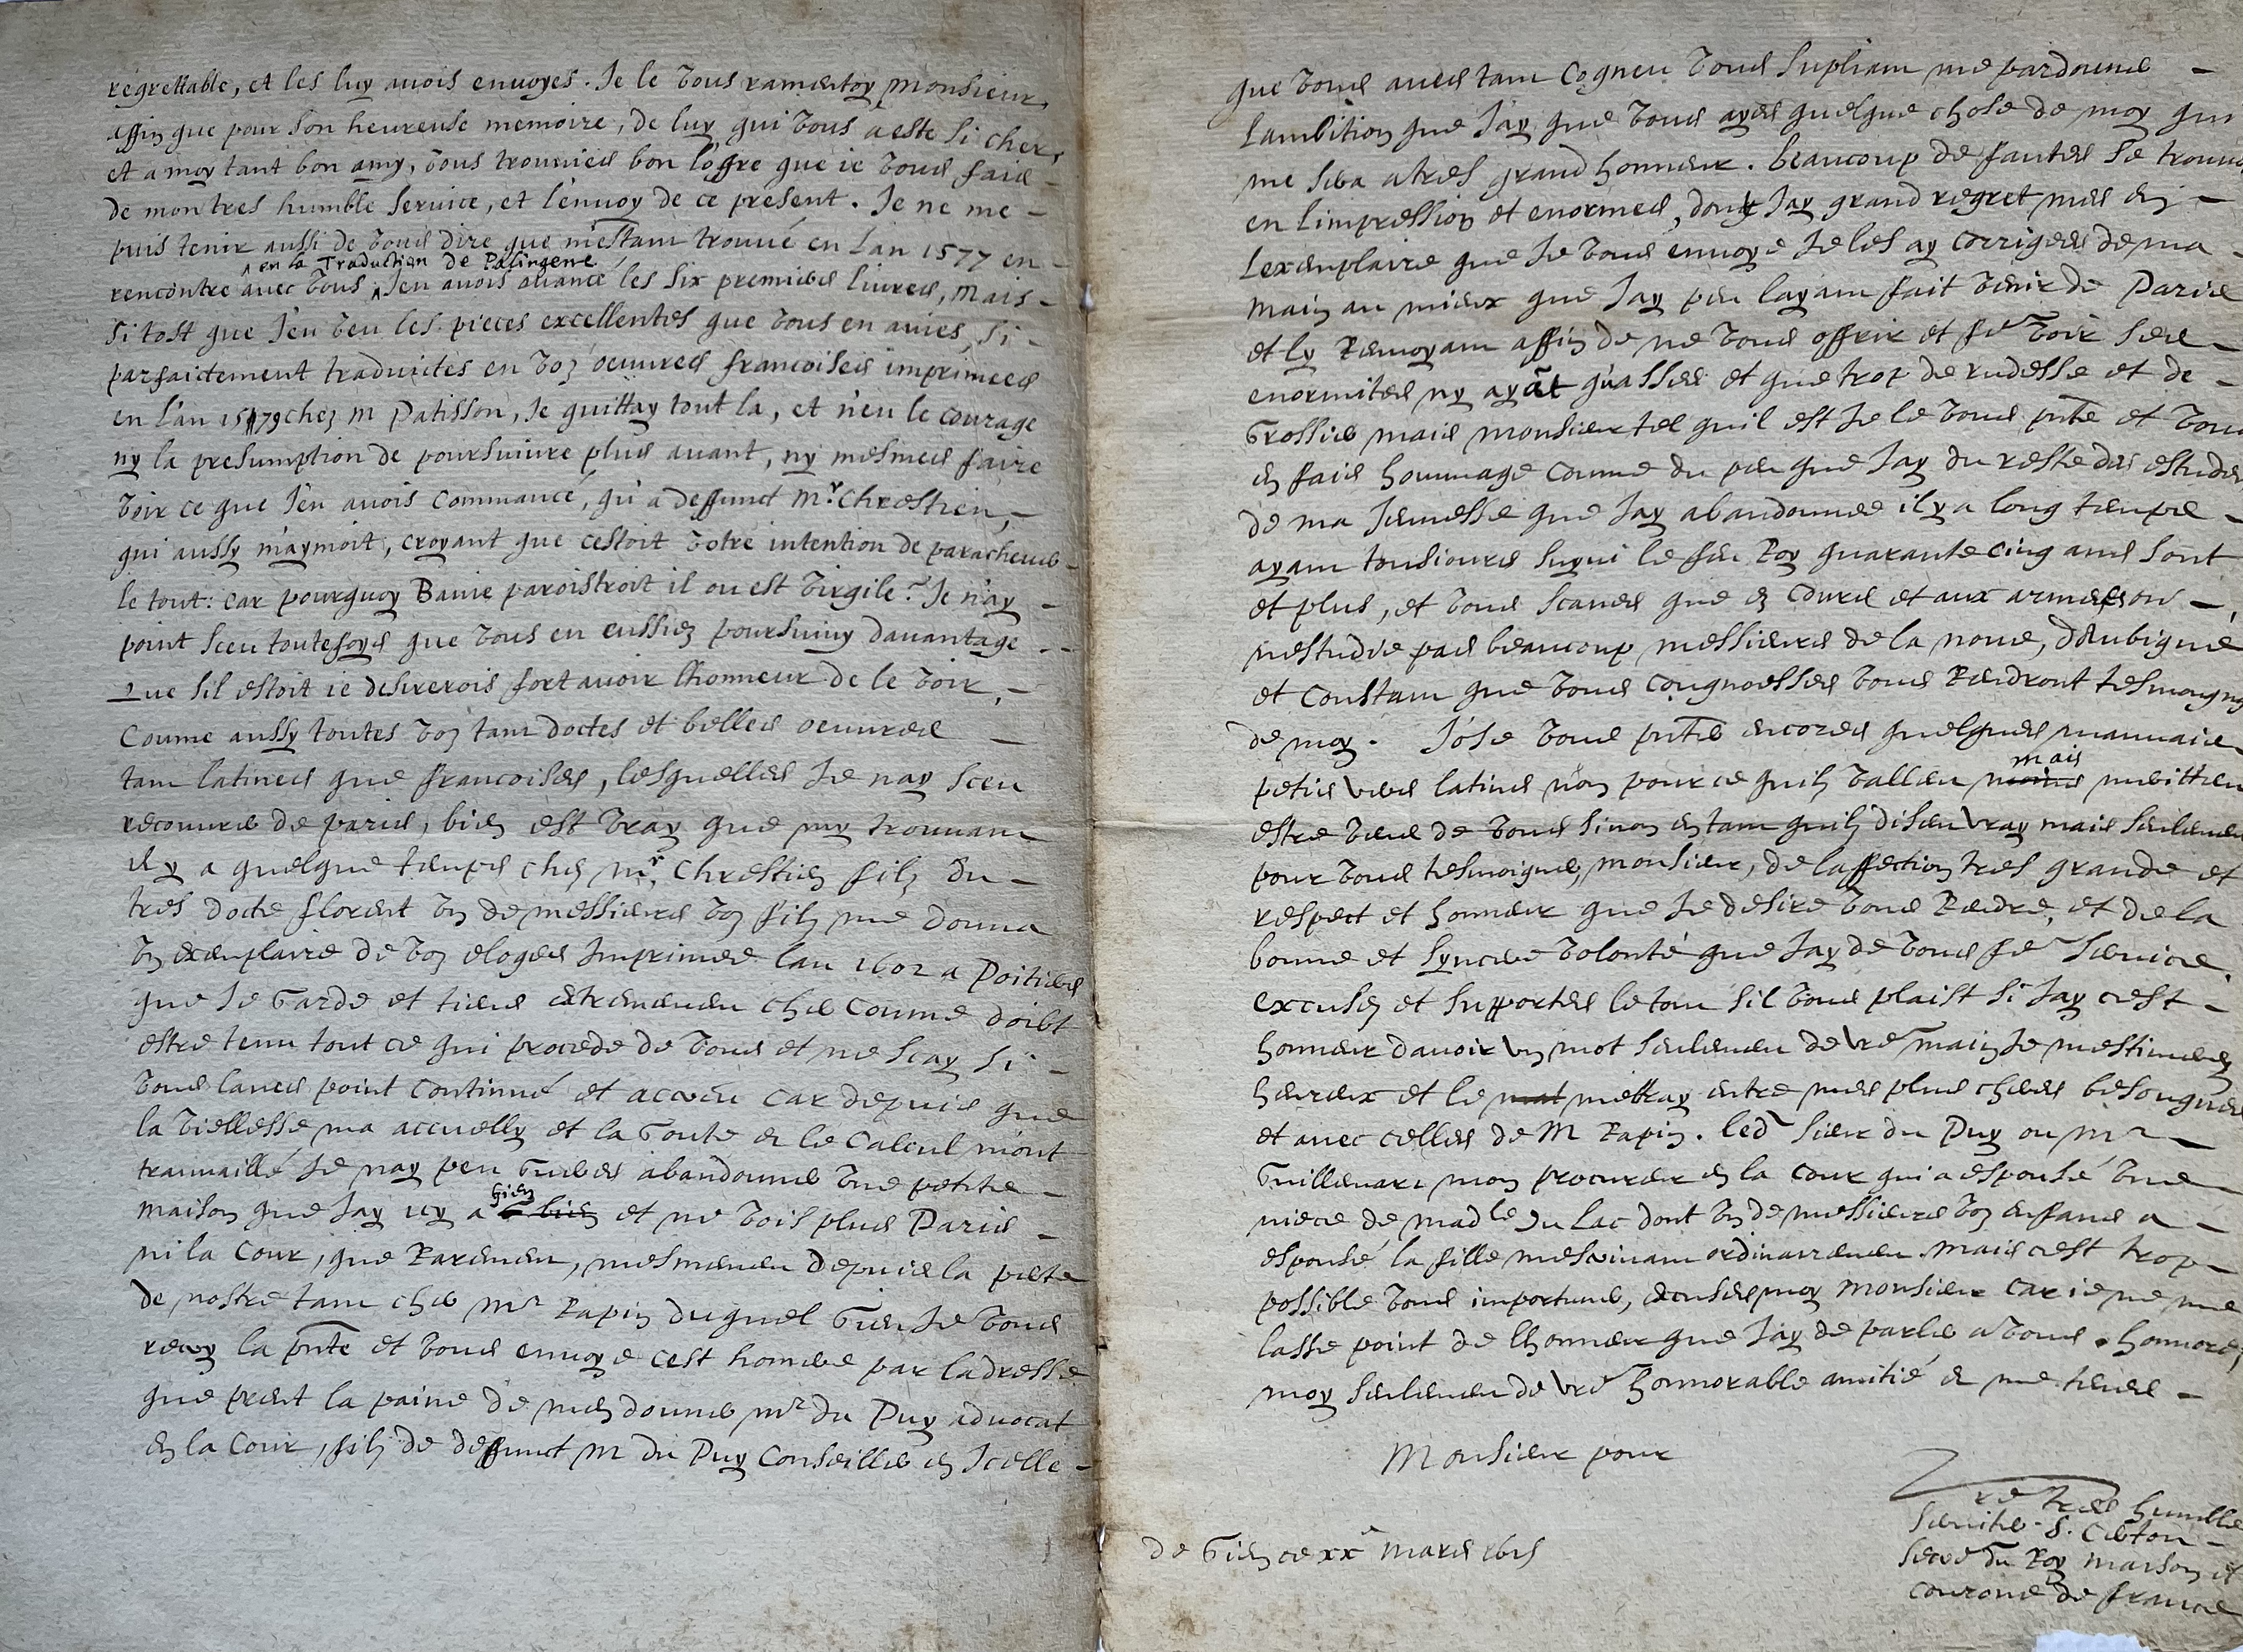 regrettable, et les luy auois enuoyes. Je le vous ramentoy monsieur,
affin que pour son heureuse memoire, de luy qui vous a este si cher,
et a moy tant bon amy, vous trouuies bon l'ofre que ie vous fais
de mon tres humble seruice, et l'enuoy de ce present. Je ne me -
puis tenir aussi de vous dire que m'estant trouué en l'an 1577 en -
en la Traduction de Palingene
rencontre auec vous J'en auois auancé les six premiers liures, mais -
si tost que J'eu veu les pieces excellentes que vous en auies, si -
parfaictement traduictes en voz oeuures francoises imprimees
en l'an 1579 chez m Patisson, Je quittay tout la, et n'eu le courage
ny la presumption de poursuiure plus auant, ny mesmes faire
voir ce que J'en auois commancé, qu'a deffunct Mr. Chrestien, -
qui aussy m'aymoit, croyant que cestoit votre intention de paracheuer -
le tout: car pourquoy Bauie paroistroit il ou est virgile? Je n'ay -
point sceu toutefoys que vous en eussiez poursuiuy dauantage - -
Que sil estoit ie desirerois fort auoir lhonneur de le voir, -
Coume aussy toutes voz tant doctes et belles oeuures -
tam latines que francoises, lesquelles Je nay sceu
recouurer de paris, bien est vray que my trouuant
il y a quelque temps chez mr. Chrestien filz du -
tres docte florent vn de messieurs voz filz me donna
vn exemplaire de voz eloges Imprimee lan 1602 a Poitiers
que Je garde et tiens extremement cher coume doibt
estre tenu tout ce qui procede de vous et ne scay si -
vous laues point continué et accreu car depuis que
la viellesse ma accuelly et la goute et le calcul m'ont
trauuaillé Je nay peu gueres abandonner vne petite -
gien
maison que Jay icy a et ne vois plus Paris -
ni la Cour, que Raremen, mesmemen depuis la perte
de nostre tam cher Mr Rapin duquel Gien Je vous
la pnte et vous enuoye cest homere par ladresse
que prent la paine de men donner mr du Puy aduocat
en la Cour, filz de deffunct M du Puy Conseiller en Jcelle -
que vous aues tam cogneu vous supliam me pardonner -
Lambition que Jay que vous ayes quelque chose de moy qui
me sera a tres grand honneur. beaucoup de fautes se trouue
en limpression et enormes, dont Jay grand regret mes en -
Lexemplaire que Je vous enuoye Je les ay corrigees de ma -
main au mieux que Jay peu layam fait venir de Paris
et ly Renuoyam affin de ne vous offrir et fe voir ses -
enormites ny ayāt qu'asses et que trop de rudesse et de -
Grossier mais monsieur tel quil est Je le vous pnte et vous
en fais hommage coume du peu que Jay du reste des estudes
de ma Jeunesse que Jay abandonnee il y a long temps -
ayam tousiours suyui le feu Roy quarante cinq ans sont
et plus, et vous scaues que en cours et aux armees on -
nestudie pas beaucoup messieurs de la noue, d'Aubigné
et Constam que vous cougnoesses vous Rendront tesmoigng
de moy. J'ose vous pnter encores quelques mauuais
mais
petis vers latins non pour ce quilz vallen meritten
estre veus de vous sinon en tam quilz disen vray mais seulemen
pour vous tesmoigner, monsieur, de laffection tres grande et
respect et honneur que Je desire vous Rendre, et de la
bonne et syncere volonté que Jay de vous fe seruice.
excusez et supportes le tou sil vous plaist si Jay cest -
honneur dauoir vn mot seulemen de vre main Je mestimerey
heureux et le mettray entre mes plus cheres besongnes
et avec celles de M Rapin. led sieur du Puy ou mr -
Guillemare mon procureur en la cour qui a espousé vne
niece de madle du Lac dont vn de messieurs voz enfans a -
espousé la fille mescriuam ordinairemen. mais cest trop -
possible vous importuner, excuses moy monsieur car ie ne me
lasse point de lhonneur que Jay de parler a vous. honnores
moy seulemen de vre honnorable amitié et me tenes -
Monsieur pour
vre tres humble
seruiter. S. Certon -
Secre du Roy maison et
couronne de france
de Gien ce xxe mars 1615